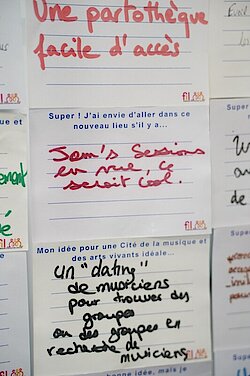 Une partothèque
facile d'accès
fil
Super ! J'ai envie d'aller dans ce
nouveau lieu s'il y a...
Jam's Sessions
en vue, ce
serait cool.
fil
Mon idée pour une Cité de la musique et
des arts vivants idéale...
un "dating"
de musiciens
pour trouver des
groupes
ou des groupes en
recherche de
musiciens
fil